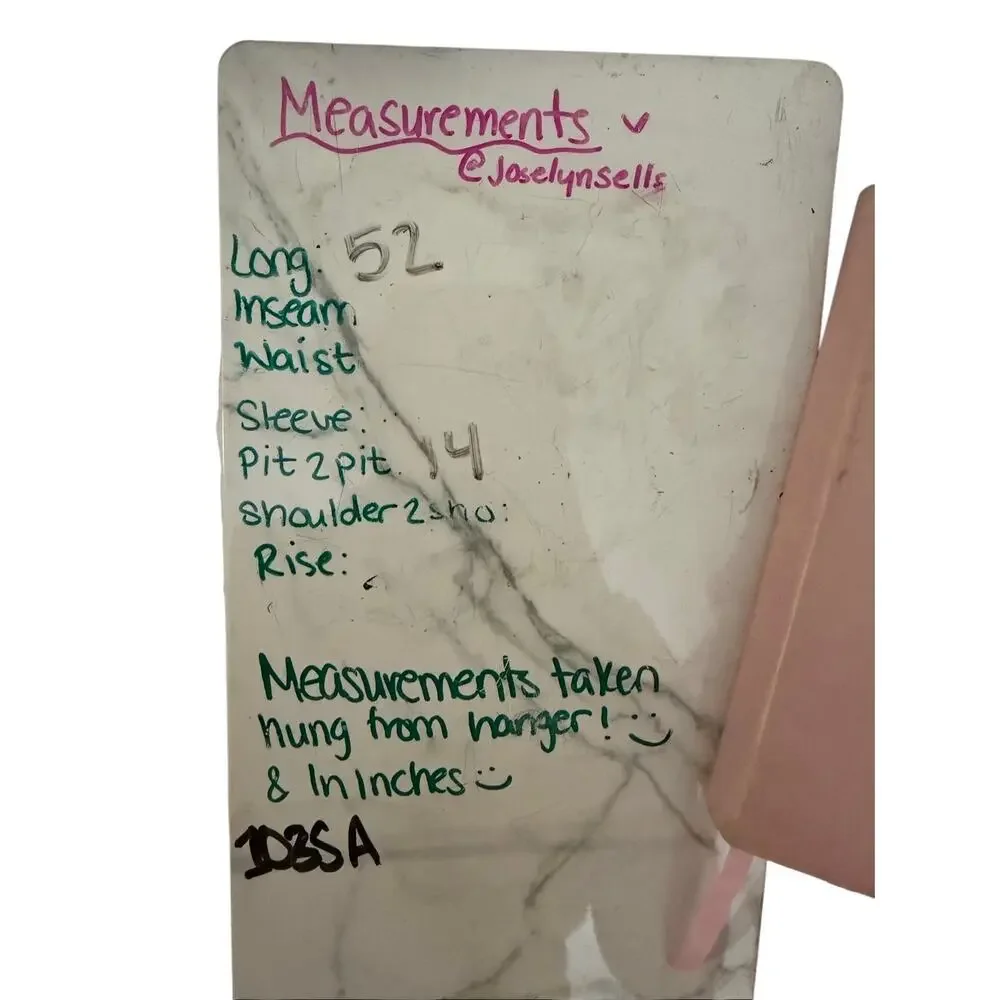 Measurements
@Joselynsells
Long: 52
Inseam
Waist
Sleeve:
Pit 2 pit. 14
Shoulder 2 sho:
Rise:
Measurements taken
hung from hanger! :)
& In Inches :)